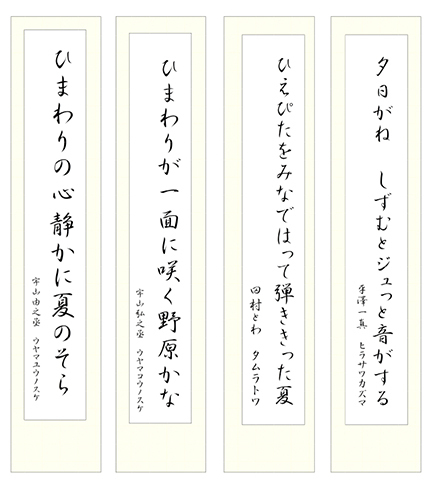 夕日がね　しずむとジュっと音がする
平澤一真　ヒラサワカズマ
ひえぴたをみなではって弾ききった夏
田村とわ　タムラトワ
ひまわりが一面に咲く野原かな
宇山弘之丞　ウヤマコウノスケ
ひまわりの心静かに夏のそら
宇山由之丞　ウヤマユウノスケ